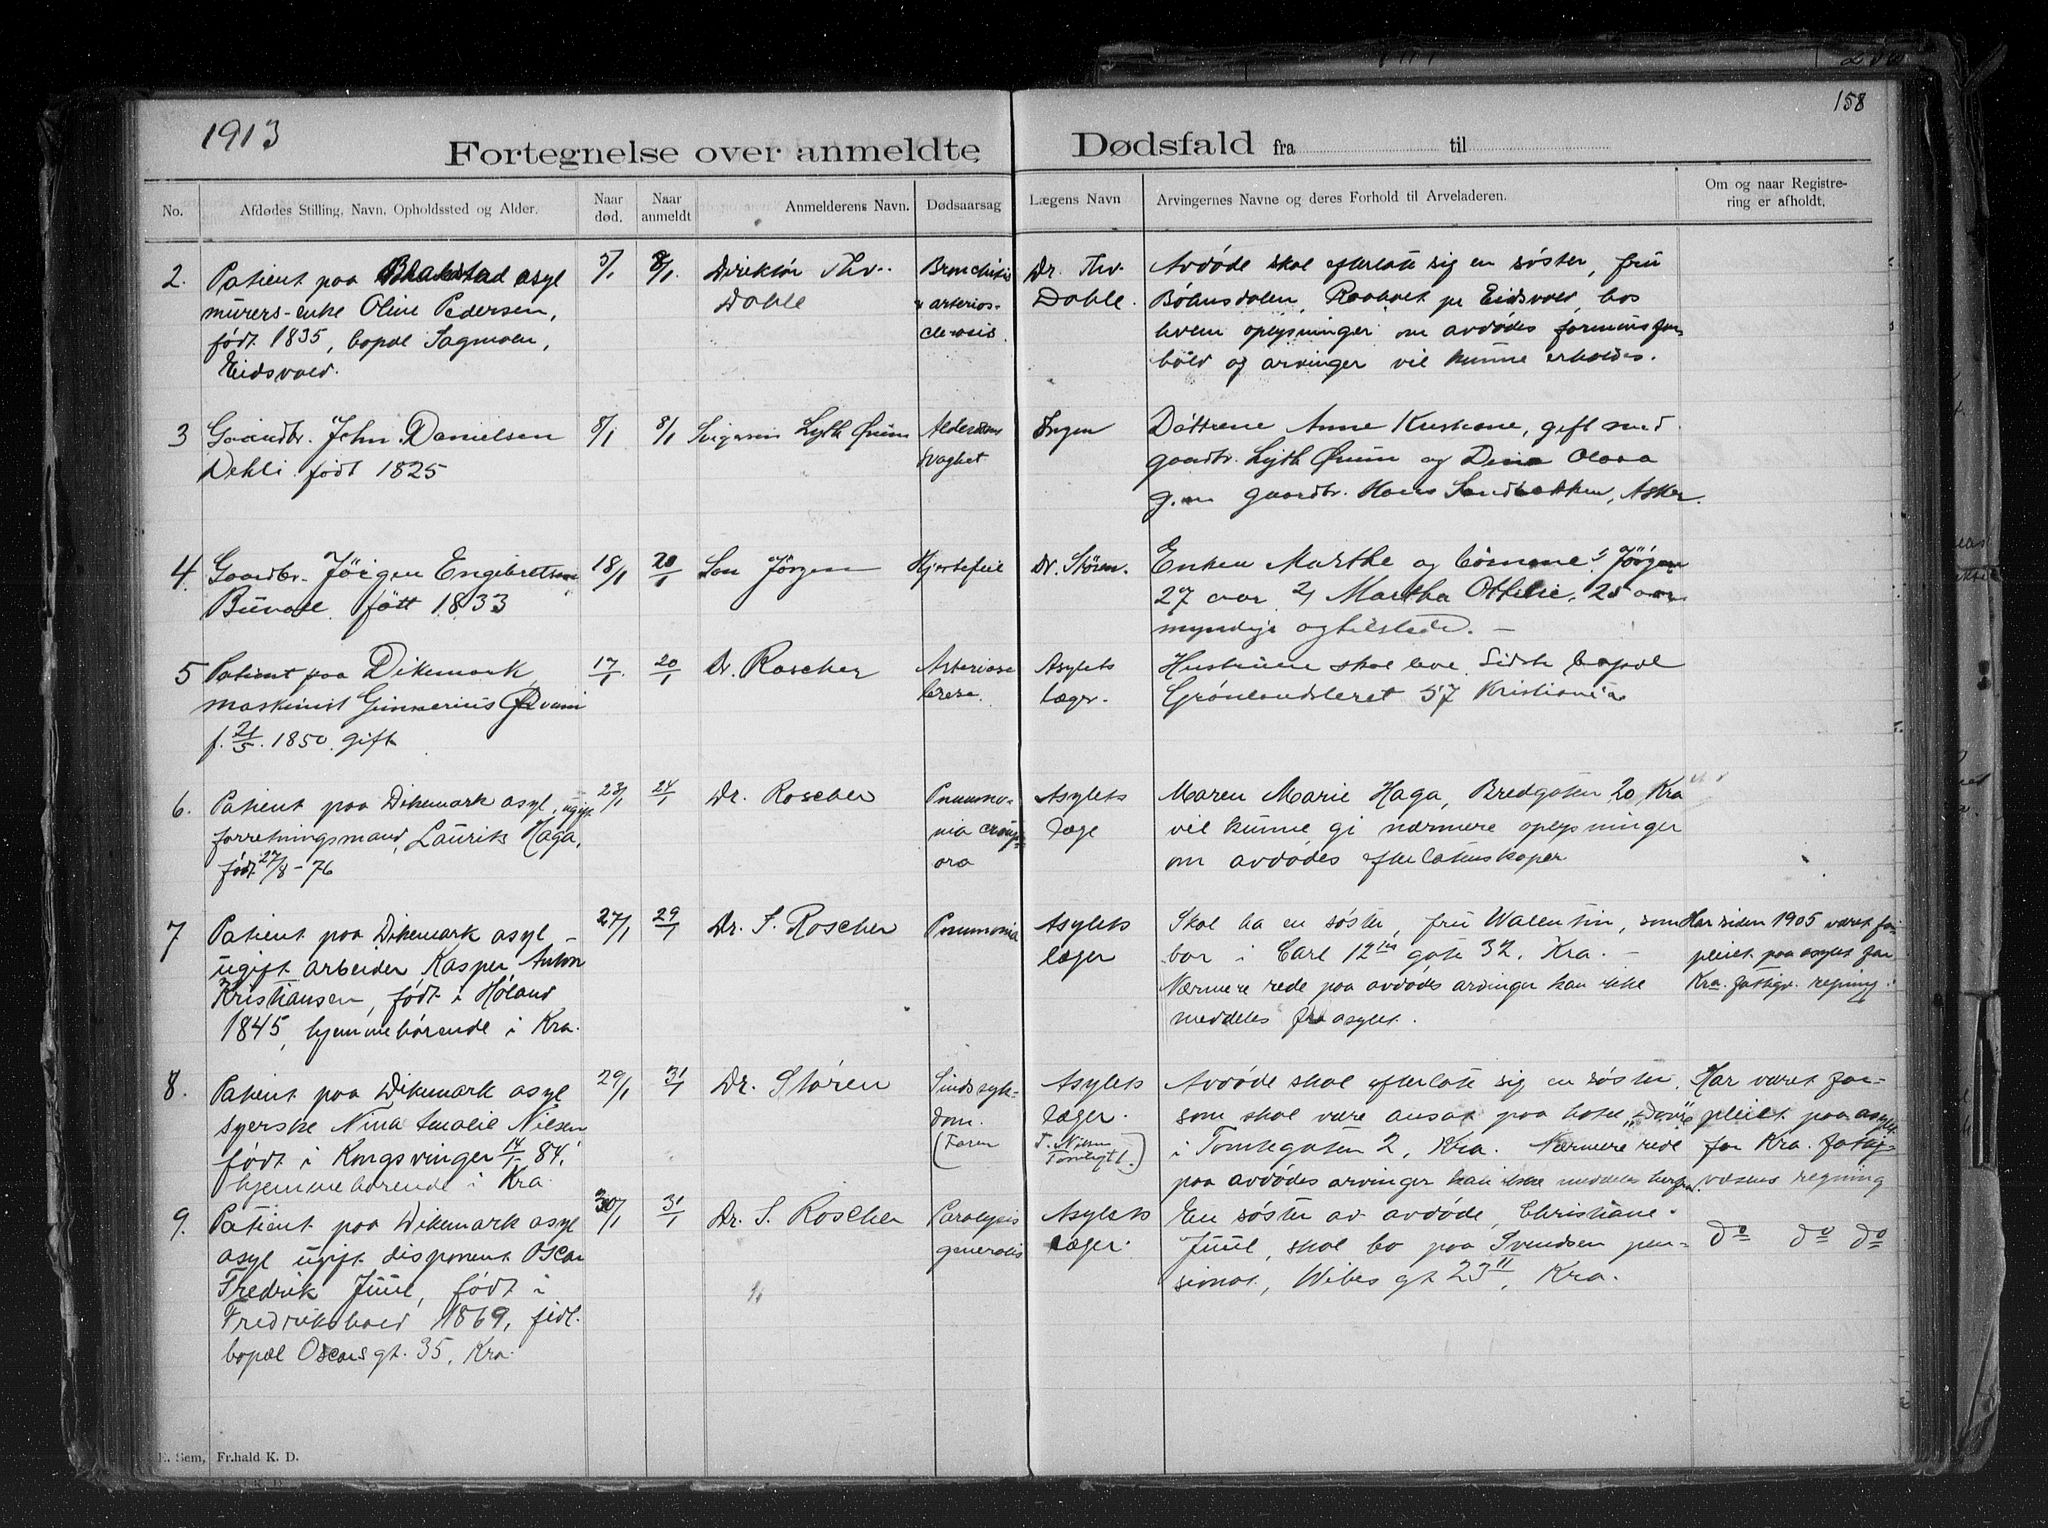 158
1913
Fortegnelse over anmeldte Dødsfald fra til
No.
Afdødes Stilling, Navn, Opholdssted og Alder.
Naar død.
Naar anmeldt
Anmelderens Navn.
Dødsaarsag
Lægens Navn
Arvingernes Navne og deres Forhold til Arveladeren.
Om og naar Registre-
ring er afholdt.
2.
Patient paa Blakstad asyl
murers-enke Oline Pedersen,
født 1835, bopæl Sagmoen,
Eidsvold.
5/1
8/1
Direktør Thv.
Dahle
Bronchitis
arterios-
clerosis
Dr. Thv.
Dahle.
Avdøde skal efterlate sig en søster, fru
Bøhnsdalen, Raaholt pr Eidsvold, hos
hvem oplysninger om avdødes formuesfor-
hold og arvinger vil kunne erholdes.
3
Gaardbr. John Danielsen
Dehli født 1825
8/1
8/1
Svigersøn Lyth Ørum
Alderdoms
svaghet
Ingen
Døttrene Anne Kristiane, gift med
gaardbr. Lyth Ørum og Dina Olava
g.m gaardbr. Hans Sandbakken, Asker.
4.
Gaardbr. Jörgen Engebretsen
Büvall født 1833
18/1
20/1
Søn Jörgen
Hjertefeil
Dr. Støren.
Enken Marthe og börnene: Jörgen
27 aar 2) Martha Othilie, 25 aar
myndige og tilstede. —
5
Patient paa Dikemark
maskinist Gunnerius Øvern
f. 21/5. 1850. gift
17/1.
20/1
Dr. Roscher
Asylets
læger.
Hustruen skal leve. Sidste bopæl
Grønlandsleret 57 Kristiania
6.
Patient paa Dikemark asyl, ugift
forretningsmand, Laurits Haga,
født 27/8-76
23/1
24/1
Dr. Roscher
Pneumo-
nia croup-
osa
Asylets
læge
Maren Marie Haga, Bredgaten 20 Kra
vil kunne gi nærmere oplysninger
om avdødes efterlatenskaper
7
Patient paa Dikemark asyl
ugift arbeider Kasper Anton
Kristiansen, født i Høland
1845, hjemmehørende i Kra.
27/1
29/1
Dr. S. Roscher
Pneumonia
Asylets
læger
Skal ha en søster, fru Walentin, som
bor i Carl 12tes gate 32, Kra. —
Nærmere rede paa avdødes arvinger kan ikke
meddeles fra asylet.
Har siden 1905 været for-
pleiet paa asylet for
Kra. fattigv. regning.
8.
Patient paa Dikemark asyl
syerske Nina Amalie Nielsen
født i Kongsvinger 14/1 84,
hjemmehørende i Kra.
29/1
31/1
Dr. Støren
Sindssyk-
dom.
(Faren
Asylets
læger.
T. Nilsen
Tomtegt 1.)
Avdøde skal efterlate sig en søster,
som skal være ansat paa hotel "Dovre"
i Tomtegaten 2, Kra. Nærmere rede
paa avdødes arvinger kan ikke meddeles herfra.
Har været for-
pleiet paa asylet
for Kra. fattig-
væsens regning
9.
Patient paa Dikemark asyl
asyl ugift disponent Oscar
Fredrik Juul, født i
Fredrikshald 1869, sidl.
bopæl Oscarsgt. 35, Kra.
30/1
31/1
Dr. S. Roscher
Paralysis
generalis
Asylets
læger.
En søster av avdøde, Christiane
Juul, skal bo paa Svendsen pen-
sionat, Wibes gt 23 II, Kra.
do do do
E. Sem, Fr.hald K. D.